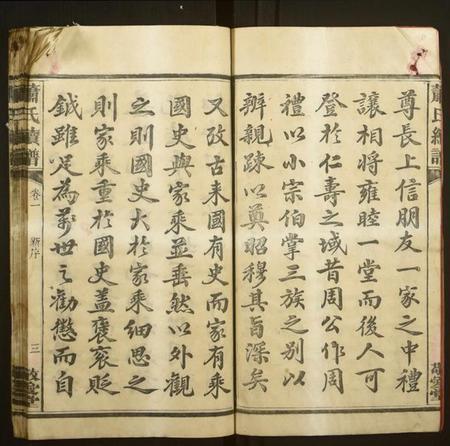 蕭氏續譜
尊長上信朋友一家之中禮
讓相將雍睦一堂而後人可
登於仁壽之域昔周公作周
禮以小宗伯掌三族之別以
辨親疎以奠昭穆其旨深矣
又攷古来國有史而家有乗
國史與家乗並垂然以外觀
之則國史大於家乗細思之
則家乗重於國史蓋褒衮貶
鉞雖足為萬世之勸懲而自
蕭氏續譜 卷一 新序 三